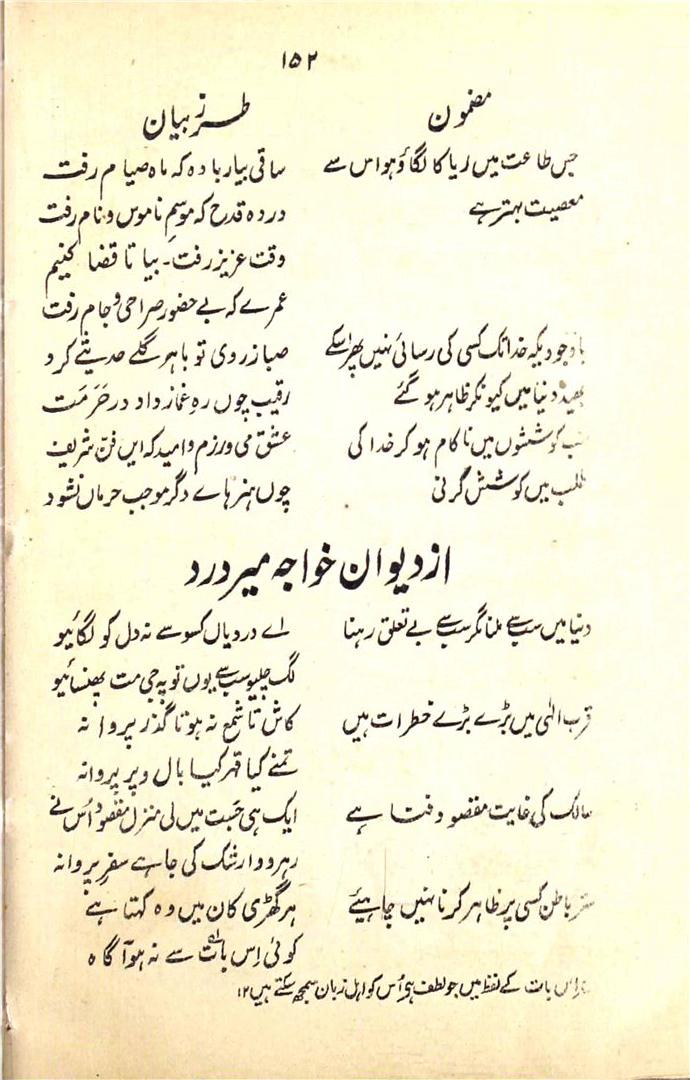 ۱۵۲
مضمون
طرز بیان
جس طاعت میں ریا کا لگاؤ ہو اس سے
معصیت بہتر ہے
ساقی بیار بادہ کہ ماہ صیام رفت
دردہ قدح کہ موسمِ ناموس و نام رفت
وقت عزیز رفت۔ بیا تا قضا کنیم
عمرے کہ بے حضور صراحی و جام رفت
باوجودیکہ خدا تک کسی کی رسائی نہیں پھر اسکے
بھید دنیا میں کیونکر ظاہر ہو گئے
صبا ز روی تو با ہر گلے حدیثے کرد
رقیب چوں رہِ غماز داد در حَرَمَت
کوششوں میں ناکام ہو کر خدا کی
طلب میں کوشش کرنی
عشق می ورزم و امید کہ ایں فنّ شریف
چوں ہنر ہاے دگر موجب حرماں نشود
از دیوان خواجہ میر درد
دنیا میں سب سے ملنا مگر سب سے بے تعلق رہنا
اے درد یاں کسو سے نہ دل کو لگائیو
لگ چلیو سب سے یوں تو پہ جی مت پھنسائیو
قرب الٰہی میں بڑے بڑے خطرات ہیں
کاش تا شمع نہ ہوتا گذر پروانہ
تمنے کیا قہر کیا بال و پر پروانہ
سالک کی غایت مقصود فنا ہے
ایک ہی جَست میں لی منزل مقصود اُس نے
رہرو وا رشک کی جا ہے سفرِ پروانہ
باطن کسی پر ظاہر کرنا نہیں چاہیئے
ہر گھڑی کان میں وہ کہتا ہے
کوئی اِس بات سے نہ ہو آگاہ
اس بات کے لفظ میں جو لطف ہی اُس کو اہل زبان سمجھ سکتے ہیں ۱۲